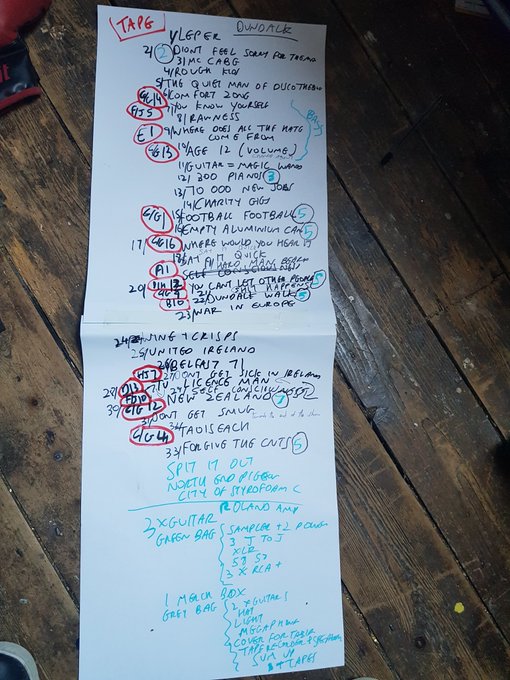 TAPE
DUNDALK
1/ LEPER
2/ 2 DIDNT FEEL SORRY FOR THEM
3/ MC CABG
4/ ROUGH KID
5/ THE QUIET MAN OF DISCOTHEQUE
6/ COMFORT ZONE
7/ YOU KNOW YOURSELF
8/ RAWNESS
E1 9/ WHERE DOES ALL THE HATE
COME FROM
10/ AGE 12 (VOLUME)
11/ GUITAR = MAGIC WAND
12/ 300 PIANOS 3
13/ 70 000 NEW JOBS
14/ CHARITY GIGS
C/G1 15/ FOOTBALL FOOTBALL 5
16/ EMPTY ALUMINIUM CAN 5
17/ WHERE WOULD YOU HEAR IT
18/ SAY IT QUICK
A1 HARD MAN
SELF CONSCIOUSNESS
20/ YOU CANT LET OTHER PEOPLE 5
SHIT HAPPENS
22/ DUNDALK WALK 5
23/ WAR IN EUROPE
24/ WINE + CRISPS
25/ UNITED IRELAND
26/ BELFAST 71
27/ DONT GET SICK IN IRELAND
28/ TV LICENCE MAN
29/ SELF CONSCIOUSNESS
30/ NEW ZEALAND
31/ DONT GET SMUG
TAOISEACH
33/ FORGIVE THE CNTS 5
SPIT IT OUT
NORTH END PIGEON
CITY OF STYROFOAM C
ROLAND AMP
3 X GUITAR
GREEN BAG
SAMPLER + 2 POWER
3 J TO J
XLR
58 57
3 X RCA +
1 MERCH BOX
GREY BAG
2 X GUITARS
HAT
LIGHT
MEGAPHONE
COVER FOR TABLE
TAPE RECORDER + SPEAKER
SUM UP
+ TAPES